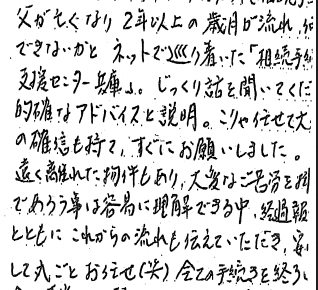 父が亡くなり 2年以上の歳月が流れ、
できないかと ネットで辿り着いた「相続手続
支援センター兵庫」。じっくり話を聞いてくだ
的確なアドバイスと説明。こりゃ任せて大
の確信も持て、すぐにお願いしました。
遠く離れた物件もあり、大変なご苦労を掛
であろう事は容易に理解できる中、経過報
とともに これからの流れも伝えていただき、安
して丸ごとお任せ(笑) 全ての手続きを終え